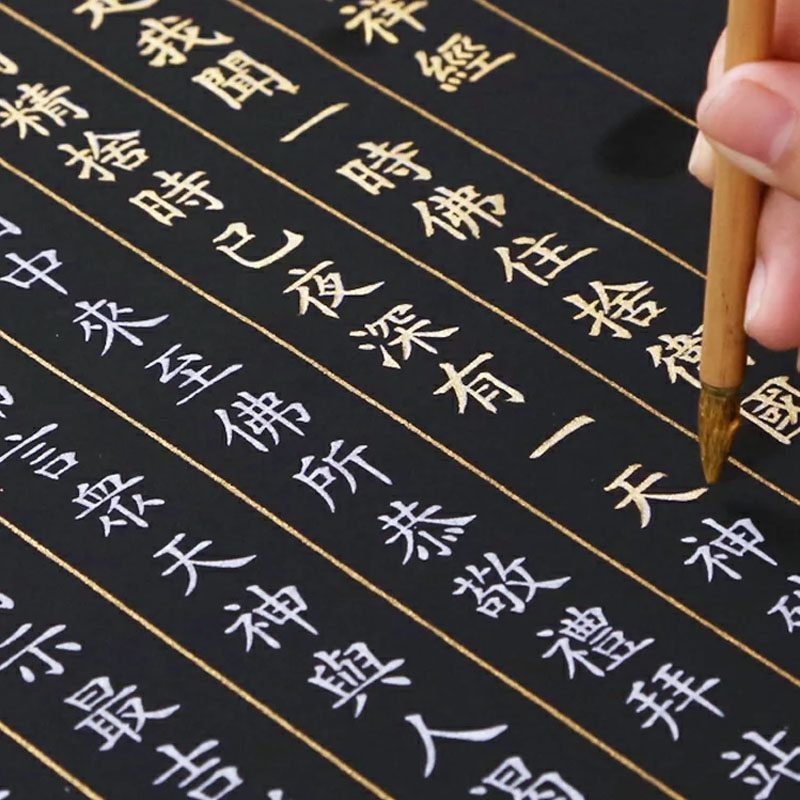 祥經
是我聞一時佛住捨衛國
精捨時已夜深有一天神
中來至佛所恭敬禮拜站
言眾天神與人渴
示最吉